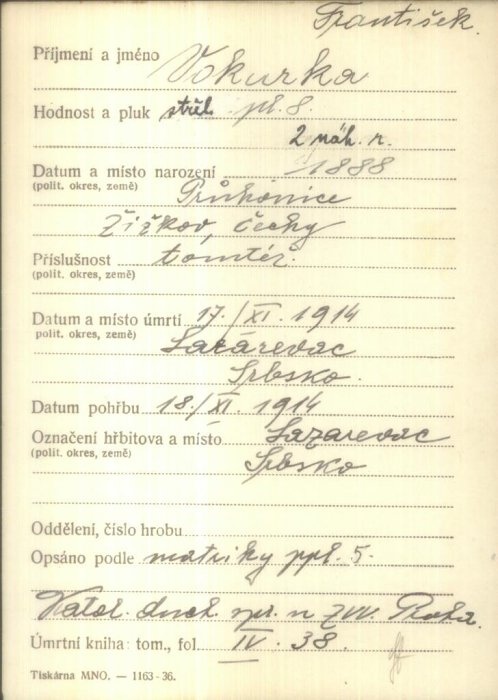 František.
Příjmení a jméno Vokurka
Hodnost a pluk střel pl. 8.
2 náh. r.
Datum a místo narození 1888
(polit. okres, země) Průhonice
Žižkov, Čechy
Příslušnost tomtéž.
(polit. okres, země)
Datum a místo úmrtí 17./XI. 1914
(polit. okres, země) Lazarevac
Srbsko.
Datum pohřbu 18./XI. 1914
Označení hřbitova a místo Lazarevac
(polit. okres, země) Srbsko
Oddělení, číslo hrobu
Opsáno podle matriky ppl. 5.
Katol. duch. spr. n ZVV. Praha.
Úmrtní kniha: tom., fol. IV. 38.
Tiskárna MNO. — 1163-36.